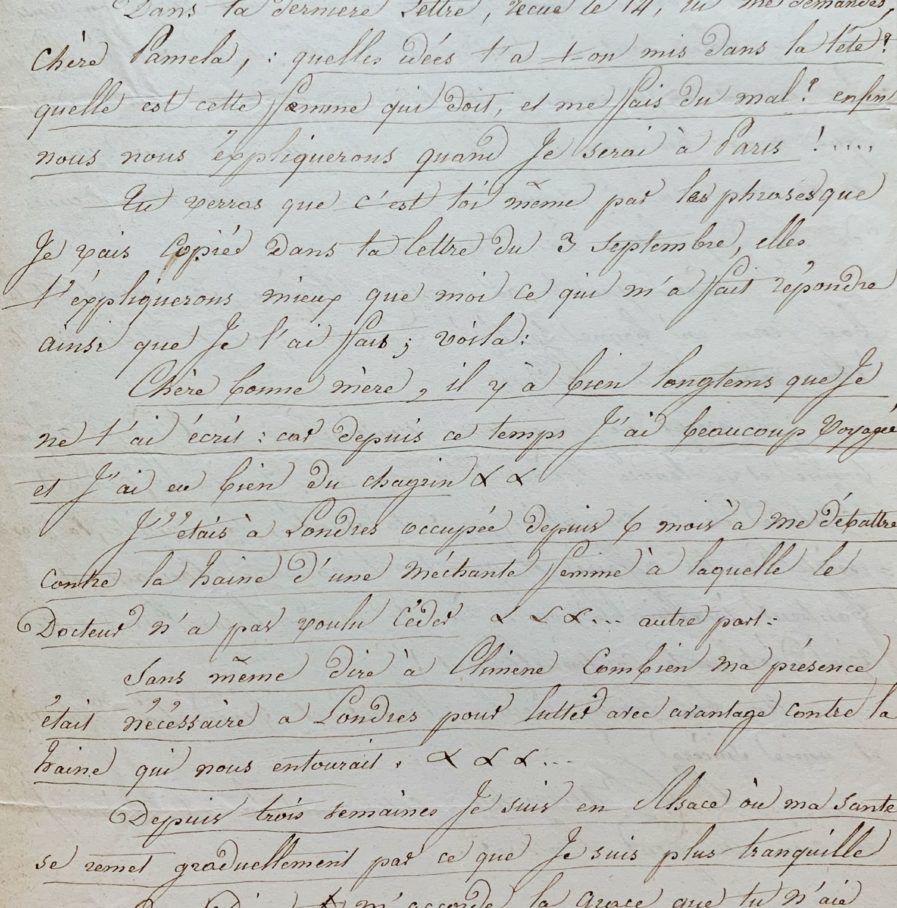 Dans ta derniere Lettre, recue le 14, tu me demandes,
Chère Pamela, : quelles idées t'a t-on mis dans la tête?
quelle est cette ffemme qui doit, et me ffais du mal? enfin
nous nous éxpliquerons quand Je serai à Paris !....
Tu verras que c'est toi même par les phrases que
Je vais Copiéé Dans ta lettre du 3 septembre, elles
t'éxpliquerons mieux que moi ce qui m'a ffait répondre
ainsi que Je l'ai ffais ; voila :
Chère bonne mère, il y à bien longtems que Je
ne t'ai écris : car depuis ce temps J'ai beaucoup voyagée
et J'ai eu bien du chagrin α α
J'étais à Londres occupée depuis 6 mois à me débattre
contre la haine d'une méchante ffemme à laquelle le
Docteur n'a pas voulu céder α α α... autre part :
Sans même dire à Climene Combien ma présence
était nécéssaire a Londres pour lutter avec avantage contre la
haine qui nous entourait. α α α...
Depuis trois semaines Je suis en Alsace où ma santé
se remet graduellement par ce que Je suis plus tranquille
m'accorde la grace que tu n'aie